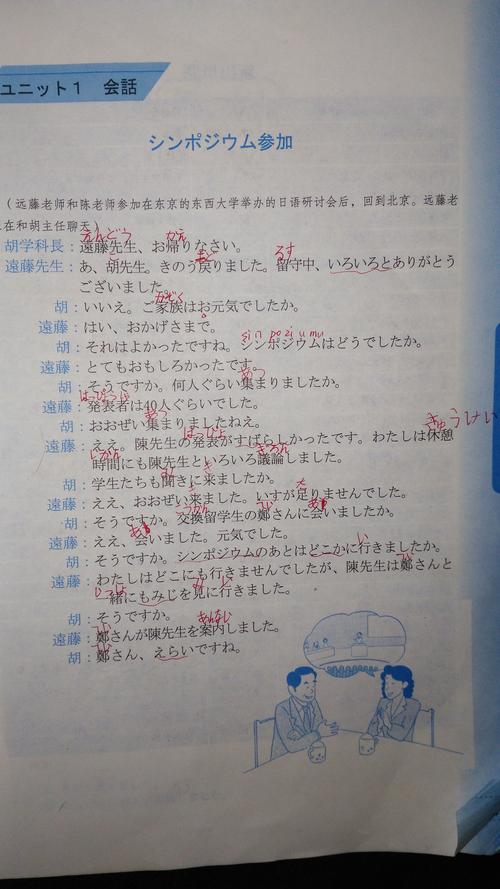 ユニット1 会話
シンポジウム参加
(远藤老师和陈老师参加在东京的东西大学举办的日语研讨会后，回到北京。远藤老
在和胡主任聊天)
えんどう かえ
胡学科長：遠藤先生、お帰りなさい。
もど るす
遠藤先生：あ、胡先生。きのう戻りました。留守中、いろいろとありがとう
ございました。
かぞく
胡：いいえ。ご家族はお元気でしたか。
遠藤：はい、おかげさまで。
sin pozi umu
胡：それはよかったですね。シンポジウムはどうでしたか。
遠藤：とてもおもしろかったです。
あつ
胡：そうですか。何人ぐらい集まりましたか。
遠藤：発表者は40人ぐらいでした。
あつ
胡：おおぜい集まりましたねえ。
きゅうけい
遠藤：ええ。陳先生の発表がすばらしかったです。わたしは休憩
じかん ぎろん
時間にも陳先生といろいろ議論しました。
き
胡：学生たちも聞きに来ましたか。
き た
遠藤：ええ、おおぜい来ました。いすが足りませんでした。
胡：そうですか。交換留学生の鄭さんに会いましたか。
遠藤：ええ、会いました。元気でした。
い
胡：そうですか。シンポジウムのあとはどこかに行きましたか。
遠藤：わたしはどこにも行きませんでしたが、陳先生は鄭さんと
いっしょ み
一緒にもみじを見に行きました。
胡：そうですか。
あんない
遠藤：鄭さんが陳先生を案内しました。
胡：鄭さん、えらいですね。